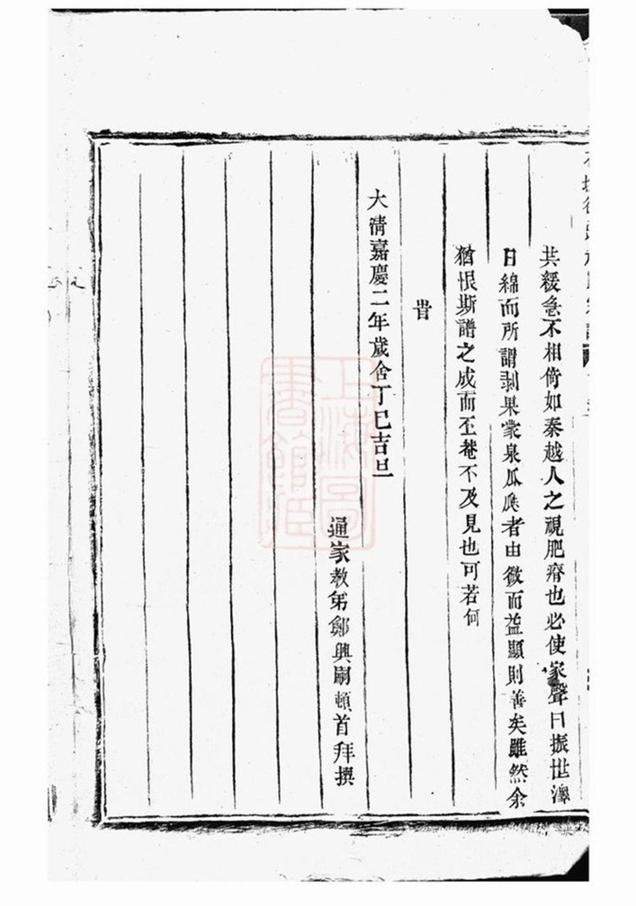 共緩急不相倚如秦越人之視肥瘠也必使家聲日振世澤
日綿而所謂剥果蒙泉瓜瓞者由微而益顯則善矣雖然余
猶恨斯譜之成而丕菴不及見也可若何
旹
大清嘉慶二年歲舍丁巳吉旦
通家教弟鄭興嗣頓首拜撰
上海圖
書館藏